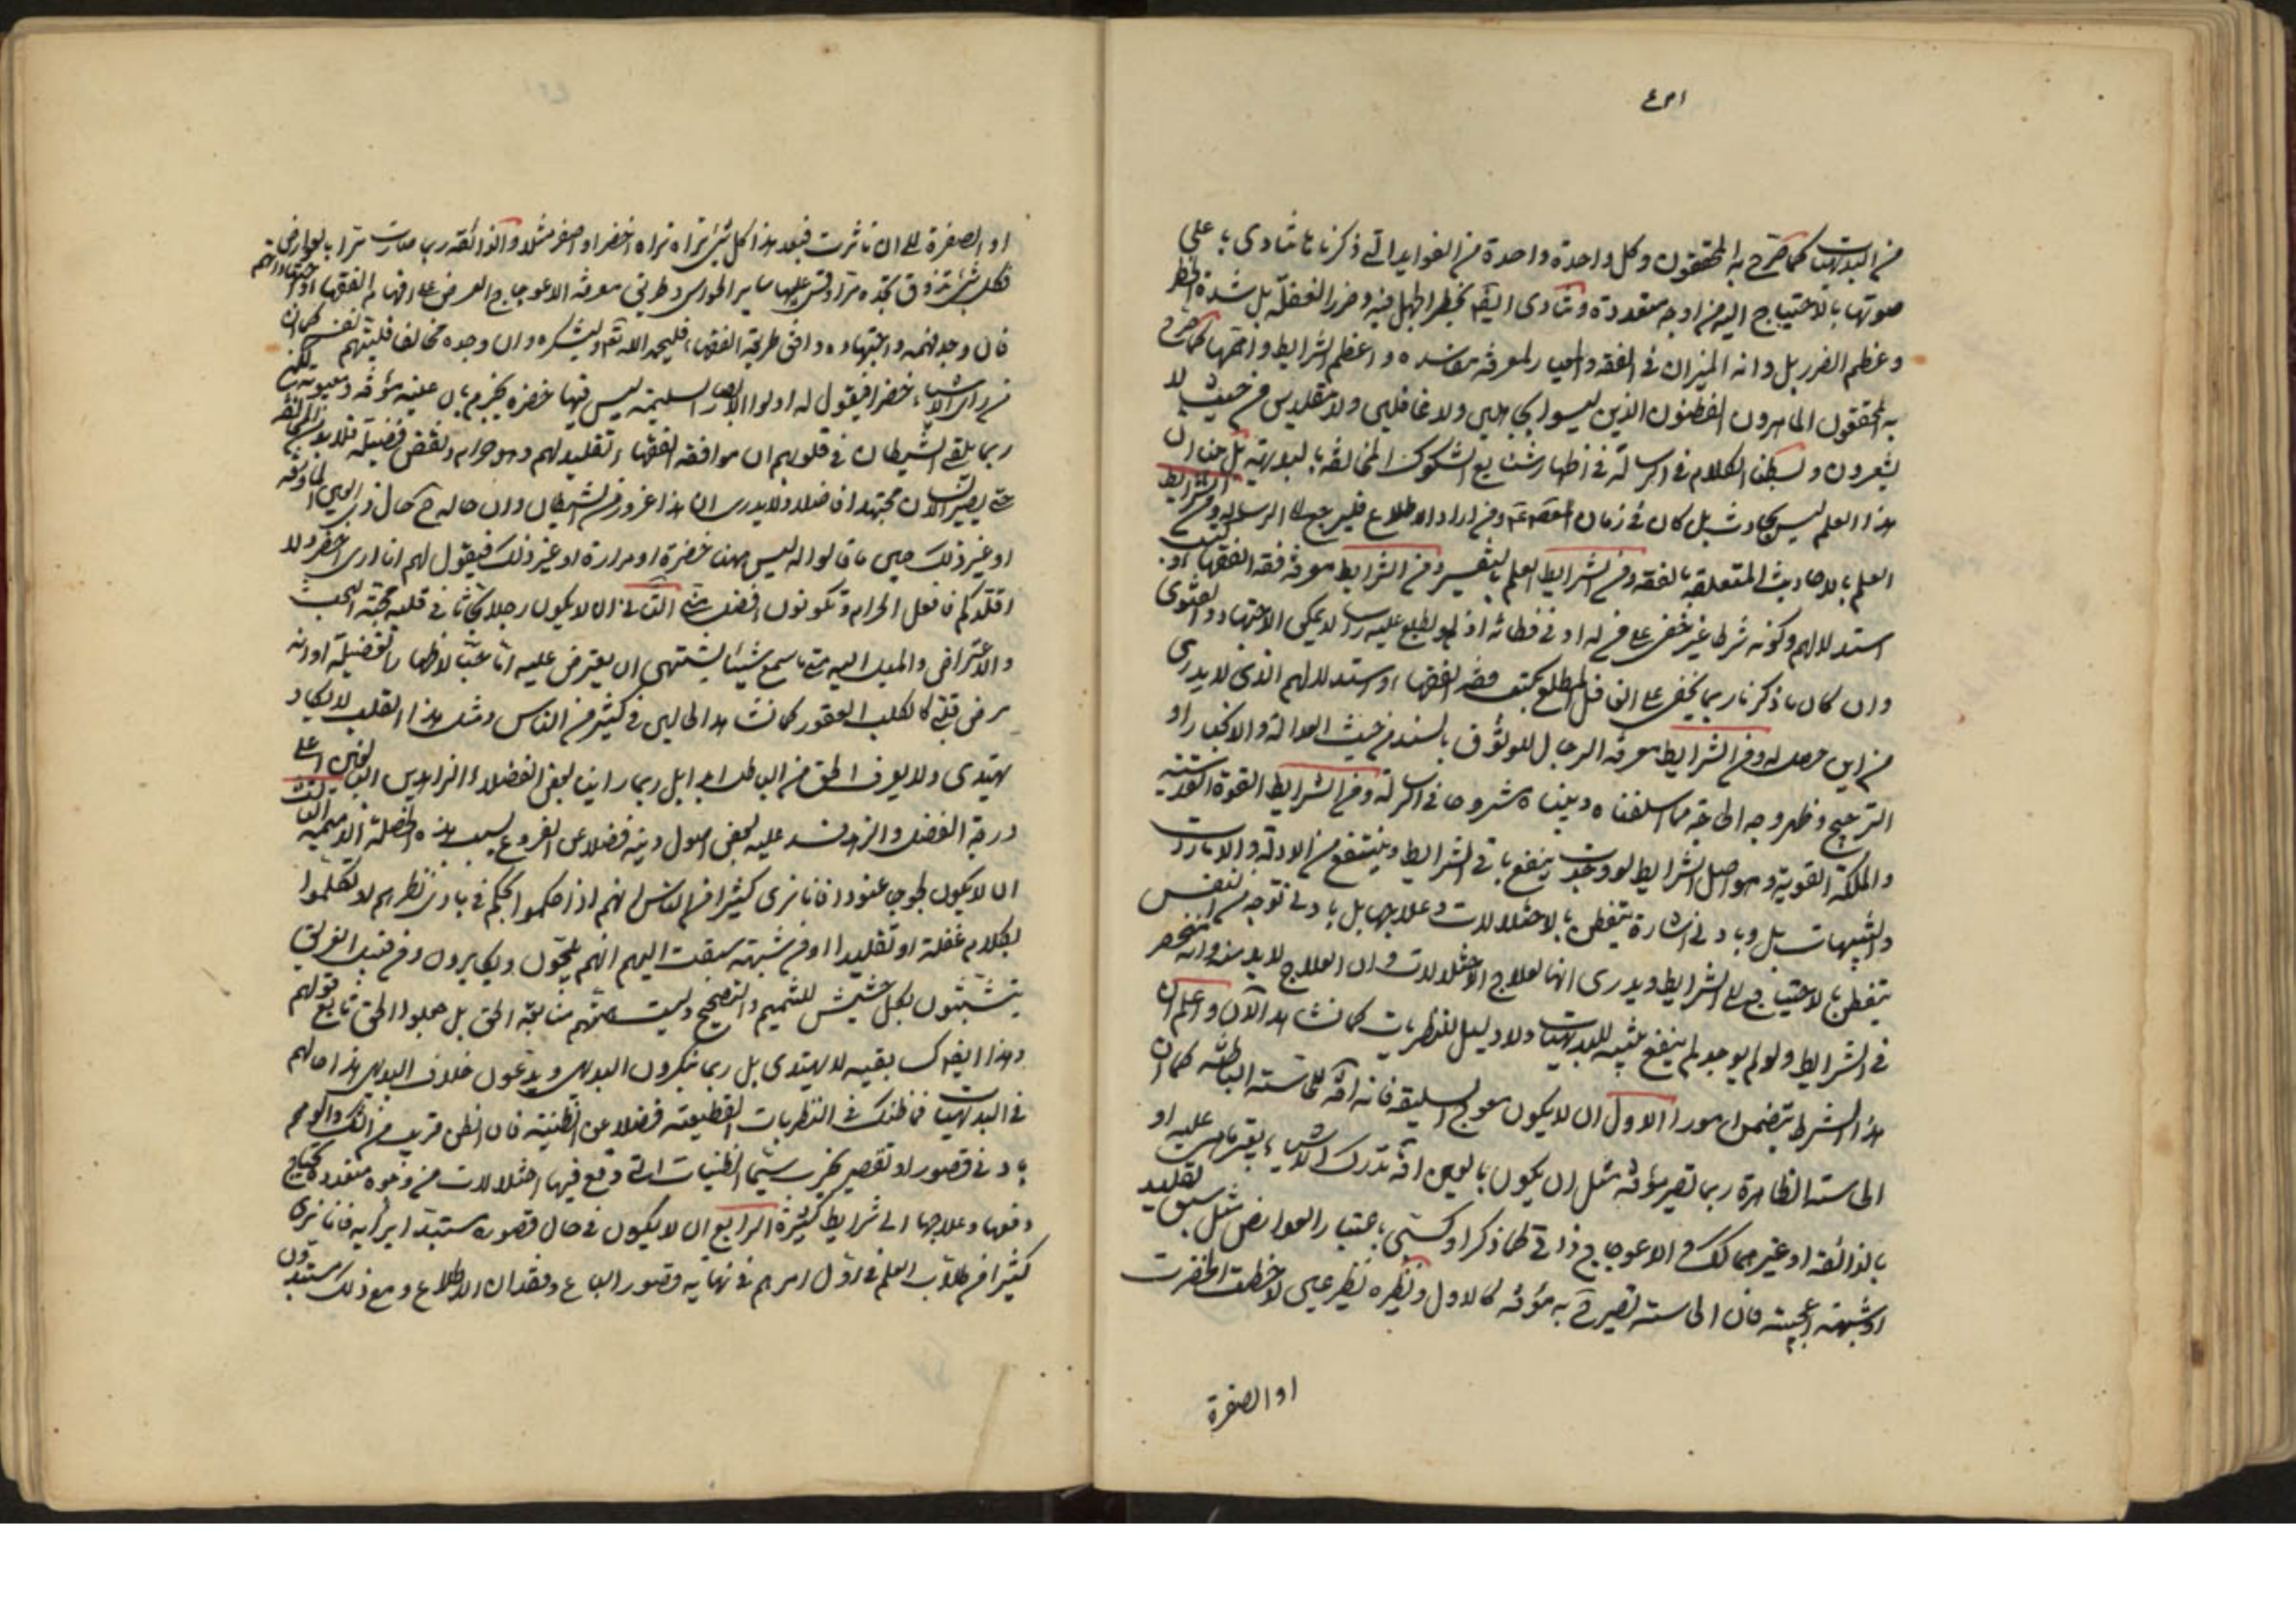 من البديهيات كما صرح به المحققون وكل واحدة واحدة من الفوايد التي ذكرناها تنادى باعلى
صوتها بالاحتياج اليه من اوجه متعددة وتنادى ايضا بخطر الجهل فيه وضرر الغفلة بل شدة الخطر
وعظم الضرر بل وانه الميزان في الفقه والمعيار لمعرفة مفاسده واعظم الشرايط واهمها كما صرح
به المحققون الماهرون الفطنون الذين ليسوا بجاهلين ولا غافلين ولا مقلدين من حيث لا
يشعرون وبسطنا الكلام في الرسالة في اظهار شنايع الشكوك المخالفة بالبديهة بل بينا ان
هذا العلم ليس بحادث بل كان في زمان المعصوم ع ومن اراد الاطلاع فليرجع الى الرسالة ومن الشرايط
العلم بالاحاديث المتعلقة بالفقه ومن الشرايط العلم بالتفسير ومن الشرايط معرفة فقه الفقهاء وكتب
استدلالهم وكونه شرطا غير خفى على من له ادنى فطانة اذ لو لم يطلع عليه راسا لا يمكن الاجتهاد والفتوى
وان كان ما ذكرنا ربما يخفى على الغافل المطلع بكتب فقه الفقهاء واستدلالهم الذى لا يدرى
من اين حصل له ومن الشرايط معرفة الرجال للوثوق بالسند من حيث العدالة والانجبار او
الترجيح وظهر وجه الحاجة مما سلفناه وبيناه مشروحا في الرسالة ومن الشرايط القوة القدسية
والملكة القوية وهو اصل الشرايط لو وجدت ينفع باقى الشرايط وينتفع من الادلة والامارات
والتنبيهات بل وبادنى اشارة يتفطن بالاختلالات وعلاجها بل بادنى توجه من النفس
يتفطن بالاحتياج الى الشرايط ويدرى انها لعلاج الاختلالات وان العلاج لا بد منه وانه منحصر
في الشرايط ولو لم يوجد لم ينفع تنبيه للبديهيات ولا دليل للنظريات كما نشاهد الآن واعلم ان
هذا الشرط يتضمن امورا الاول ان لا يكون معوج السليقة فانه آفة للحاسة الباطنة كما ان
الحاسة الظاهرة ربما تصير مؤفة مثل ان يكون بالعين آفة تدرك الاشياء بغير ما هى عليه او
بالذائقة او غيرهما كك والاعوجاج ذاتى كما ذكر او كسبى باعتبار العوارض مثل سبق تقليد
او شبهة اعجبته فان الحاسة تصير به مؤفة كالاول ونظيره نظر عين لاحظت الخضرة
او الصفرة
او الصفرة الى ان تاثرت فبعد هذا كل شئ تراه تراه اخضر او اصفر مثلا والذائقة ربما صارت مرا بالعوارض
فكل شئ تذوق تجده مرا وقس عليها ساير الحواس وطريق معرفة الاعوجاج العرض على افهام الفقهاء واجتهاداتهم
فان وجد فهمه واجتهاده وافق طريقة الفقهاء فليحمد الله تع ويشكره وان وجده مخالفا فليتهم نفسه كما ان
من راى الاشياء خضرا فيقول له اولوا الابصار السليمة ليس فيها خضرة يجزم بان عينه مؤفة ومعيوبة لكن
ربما يلقى الشيطان في قلوبهم ان موافقة الفقهاء تقليد لهم وهو حرام ونقص فضيلة فلا بد من المخالفة
حتى يصير الانسان مجتهدا فاضلا ولا يدرى ان هذا غرور من الشيطان وان حاله ح حال ذى العين المأوفة
او غير ذلك حين ما قالوا له ليس ههنا خضرة او مرارة او غير ذلك فيقول لهم انا ارى اخضر ولا
اقلدكم فافعل الحرام وتكونون افضل منى الثانى ان لا يكون رجلا بحاثا في قلبه محبة البحث
والاعتراض والميل اليه متى ما سمع شيئا يشتهى ان يعترض عليه اما حبا لاظهار الفضيلة او انه
مرض قلبى كالكلب العقور كما نشاهد الحالين في كثير من الناس ومثل هذا القلب لا يكاد
يهتدى ولا يعرف الحق من الباطل ابدا بل ربما راينا بعض الفضلاء الزاهدين البالغين اعلى
درجة الفضل والزهد فسد عليه بعض اصول دينه فضلا عن الفروع بسبب هذه الخصلة الذميمة الثالث
ان لا يكون لجوجا عنودا فانا نرى كثيرا من الناس انهم اذا حكموا بحكم في بادى نظرهم او تكلموا
بكلام غفلة او تقليدا او من شبهة سبقت اليهم انهم يلجون ويكابرون ومن قبيل الغريق
يتشبثون بكل حشيش للتتميم والتصحيح وليست همتهم متابعة الحق بل جعلوا الحق تابع قولهم
وهذا ايضا كسابقيه لا يهتدى بل ربما ينكرون البديهى ويدعون خلاف البديهى هذا حالهم
في البديهيات فما ظنك في النظريات القطعية فضلا عن الظنية فان الظن قريب من الشك والوهم
بادنى قصور او تقصير يخرب سيما الظنيات التي وقع فيها اختلالات من وجوه متعددة يحتاج
دفعها وعلاجها الى شرايط كثيرة الرابع ان لا يكون في حال قصوره مستبدا برأيه فانا نرى
كثيرا من طلاب العلم في اول امرهم في نهاية قصور الباع وفقدان الاطلاع ومع ذلك يستبدون